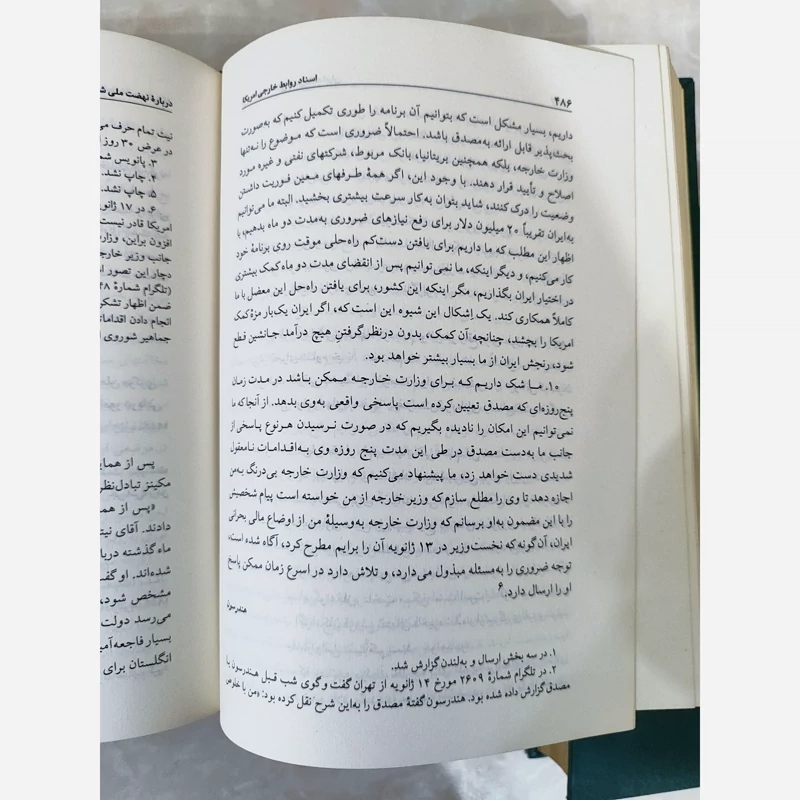 ۴۸۶
اسناد روابط خارجی امریکا
داریم، بسیار مشکل است که بتوانیم آن برنامه را طوری تکمیل کنیم که به‌صورت
بحث‌پذیر قابل ارائه به‌مصدق باشد. احتمالاً ضروری است که موضوع را نه‌تنها
وزارت خارجه، بلکه همچنین بریتانیا، بانک مربوط، شرکتهای نفتی و غیره مورد
اصلاح و تأیید قرار دهند. با وجود این، اگر همهٔ طرفهای معین فوریت داشتن
وضعیت را درک کنند، شاید بتوان به‌کار سرعت بیشتری بخشید. البته ما می‌توانیم
به‌ایران تقریباً ۲۰ میلیون دلار برای رفع نیازهای ضروری به‌مدت دو ماه بدهیم، با
اظهار این مطلب که ما داریم برای یافتن دست‌کم راه‌حلی موقت روی برنامهٔ خود
کار می‌کنیم، و دیگر اینکه، ما نمی‌توانیم پس از انقضای مدت دو ماه کمک بیشتری
در اختیار ایران بگذاریم، مگر اینکه این کشور، برای یافتن راه‌حل این معضل با ما
کاملاً همکاری کند. یک اِشکال این شیوه این است که، اگر ایران یک‌بار مزهٔ کمک
امریکا را بچشد، چنانچه آن کمک، بدون درنظر گرفتنِ هیچ درآمد جانشین قطع
شود، رنجش ایران از ما بسیار بیشتر خواهد بود.
۱۰. ما شک داریم که برای وزارت خارجه ممکن باشد در مدت زمان
پنج‌روزه‌ای که مصدق تعیین کرده است پاسخی واقعی به‌وی بدهد. از آنجا که ما
نمی‌توانیم این امکان را نادیده بگیریم که در صورت نرسیدن هرنوع پاسخی از
جانب ما به‌دست مصدق در طی این مدت پنج روزه وی به‌اقدامات نامعقول
شدیدی دست خواهد زد، ما پیشنهاد می‌کنیم که وزارت خارجه بی‌درنگ به‌من
اجازه دهد تا وی را مطلع سازم که وزیر خارجه از من خواسته است پیام شخصیش
را با این مضمون به‌او برسانم که وزارت خارجه به‌وسیلهٔ من از اوضاع مالی بحرانی
ایران، آن گونه که نخست‌وزیر در ۱۳ ژانویه آن را برایم مطرح کرد، آگاه شده است،
توجه ضروری را به‌مسئله مبذول می‌دارد، و تلاش دارد در اسرع زمان ممکن پاسخ
او را ارسال دارد.۶
هندرسون
۱. در سه بخش ارسال و به‌لندن گزارش شد.
۲. در تلگرام شمارهٔ ۲۶۰۹ مورخ ۱۴ ژانویه از تهران گفت وگوی شب قبل هندرسون با
مصدق گزارش داده شده بود. هندرسون گفتهٔ مصدق را به‌این شرح نقل کرده بود: «من با خلوص
دربارهٔ نهضت ملی
نیت تمام حرف
در عرض ۳۰ روز
۳. پانویس
۴. چاپ نشد.
۵. چاپ نشد.
۶. در ۱۷ ژانویه
امریکا قادر نیست
افزون براین، وزارت
جانب وزیر خارجه
دچار این تصور
(تلگرام شمارهٔ
ضمن اظهار تشکر
انجام دادن اقدامات
جماهیر شوروی
پس از
مکینز تبادل‌نظر
«پس از
دادند. آقای
ماه گذشته
شده‌اند. او
مشخص شود،
می‌رسد دولت
بسیار
انگلستان برای